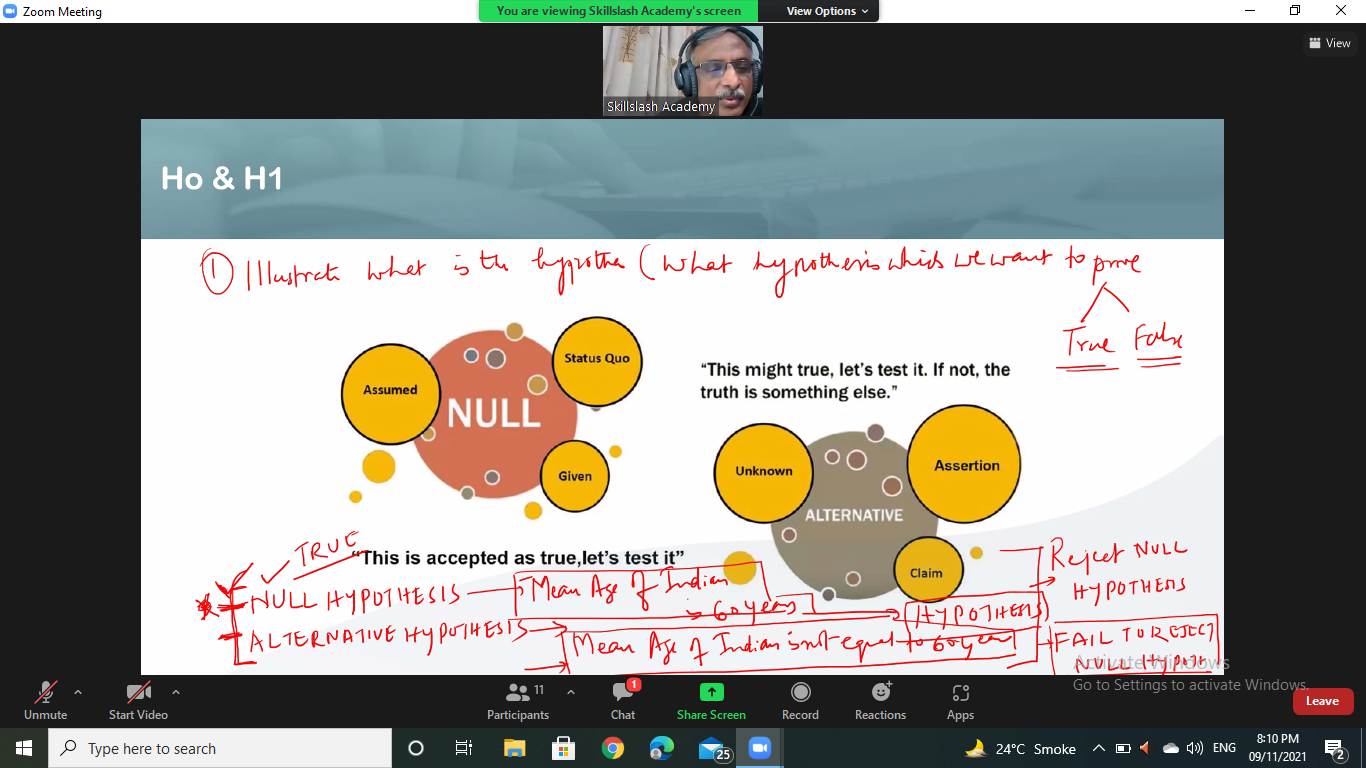 Zoom Meeting
You are viewing Skillslash Academy's screen
View Options
View
Skillslash Academy
Ho & H1
① Illustrate what is the hypothes (What hypothesis which we want to prove
True False
Assumed
Status Quo
NULL
Given
"This might true, let's test it. If not, the
truth is something else."
Unknown
Assertion
ALTERNATIVE
Claim
TRUE
"This is accepted as true,let's test it"
NULL HYPOTHESIS
Mean Age of Indian
is 60 years
HYPOTHESIS
Reject NULL
HYPOTHESIS
ALTERNATIVE HYPOTHESIS
Mean Age of Indian isn't equal to 60 year
FAIL TO REJECT
NULL HYPOTH
Activate Windows
Go to Settings to activate Windows.
Unmute
Start Video
Participants
11
Chat
1
Share Screen
Record
Reactions
Apps
Leave
Type here to search
25
24°C Smoke
ENG
8:10 PM
09/11/2021
2